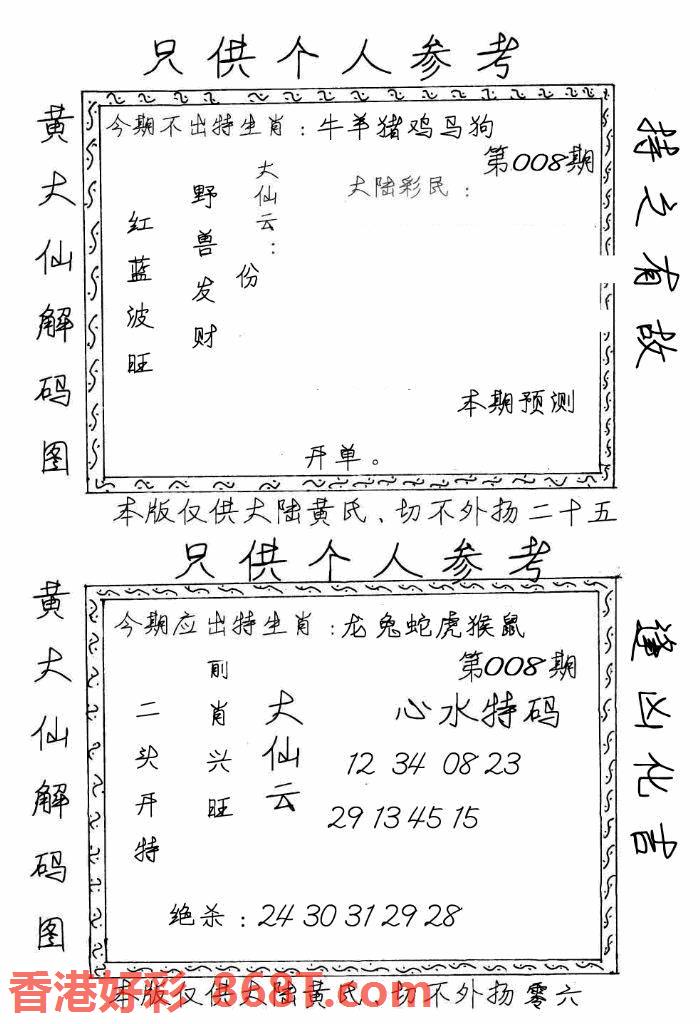 只供个人参考
黄大仙解码图
今期不出特生肖：牛羊猪鸡马狗
第008期
大陆彩民：
大仙云：
份
野兽发财
红蓝波旺
本期预测
开单。
持之有故
本版仅供大陆黄氏、切不外扬二十五
只供个人参考
黄大仙解码图
今期应出特生肖：龙兔蛇虎猴鼠
第008期
心水特码
大仙云
前肖兴旺
二头开特
12 34 08 23
29 13 45 15
绝杀：24 30 31 29 28
逢凶化吉
香港好彩 868T.com
本版仅供大陆黄氏、切不外扬零六